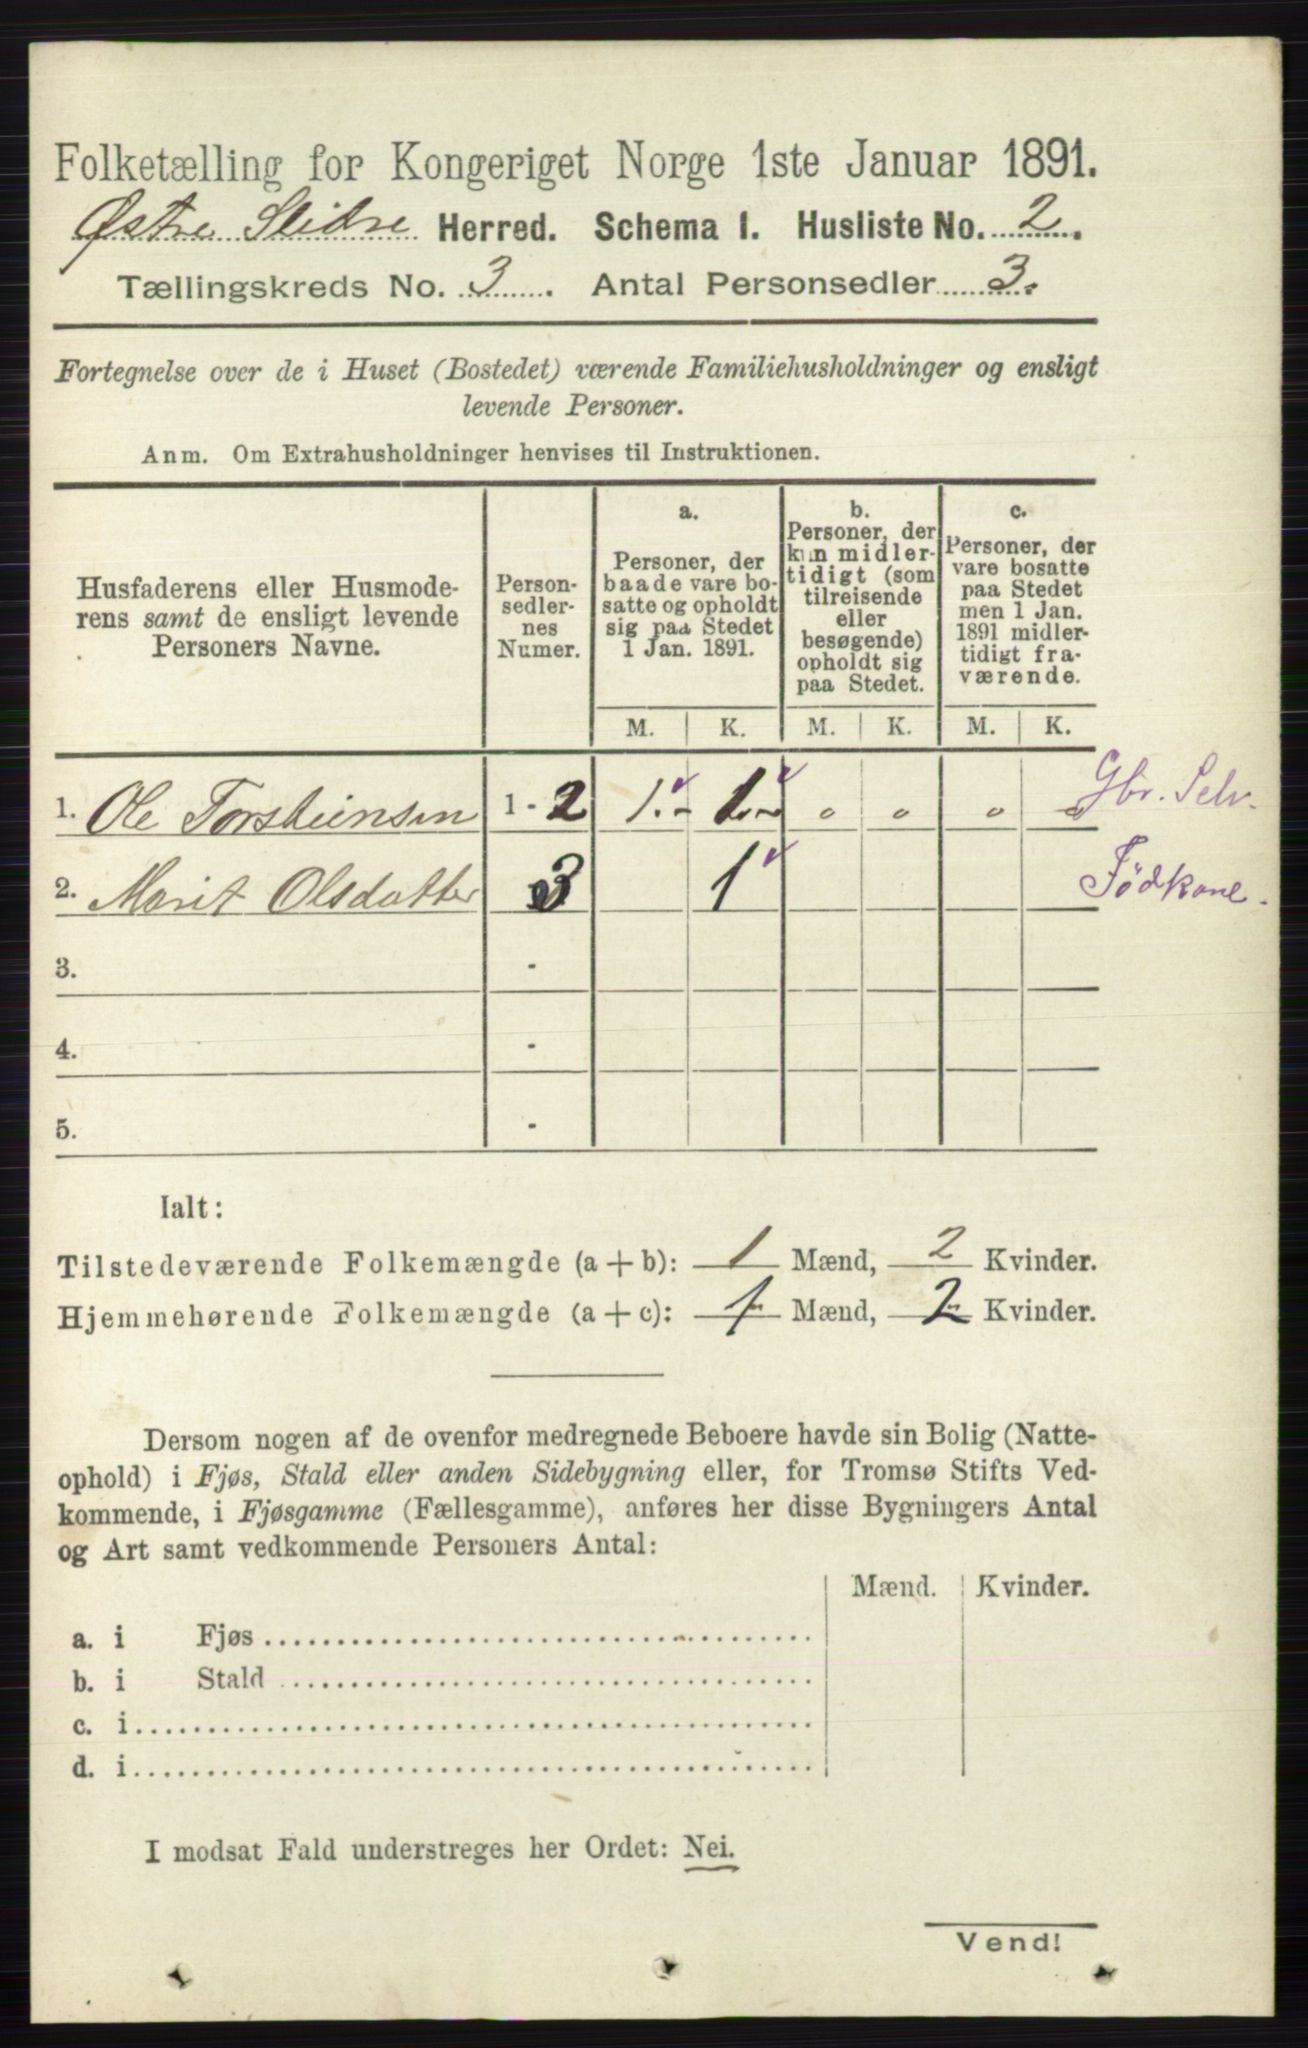 Folketælling for Kongeriget Norge 1ste Januar 1891.
Østre Slidre Herred. Schema I. Husliste No. 2.
Tællingskreds No. 3. Antal Personsedler 3.
Fortegnelse over de i Huset (Bostedet) værende Familiehusholdninger og ensligt
levende Personer.
Anm. Om Extrahusholdninger henvises til Instruktionen.
Husfaderens eller Husmode-
rens samt de ensligt levende
Personers Navne.
Person-
sedler-
nes
Numer.
a.
Personer, der
baade vare bo-
satte og opholdt
sig paa Stedet
1 Jan. 1891.
b.
Personer, der
kun midler-
tidigt (som
tilreisende
eller
besøgende)
opholdt sig
paa Stedet.
c.
Personer, der
vare bosatte
paa Stedet
men 1 Jan.
1891 midler-
tidigt fra-
værende.
M. K. M. K. M. K.
1. Ole Torsteinsen 1 - 2 1.- 1.- 0 0 0 0 Gbr. Selv.
2. Marit Olsdatter 3 1 Födkone.
3. -
4. -
5. -
Ialt:
Tilstedeværende Folkemængde (a + b): 1 Mænd, 2 Kvinder.
Hjemmehørende Folkemængde (a + c): 1 Mænd, 2 Kvinder.
Dersom nogen af de ovenfor medregnede Beboere havde sin Bolig (Natte-
ophold) i Fjøs, Stald eller anden Sidebygning eller, for Tromsø Stifts Ved-
kommende, i Fjøsgamme (Fællesgamme), anføres her disse Bygningers Antal
og Art samt vedkommende Personers Antal:
Mænd. Kvinder.
a. i Fjøs
b. i Stald
c. i
d. i
I modsat Fald understreges her Ordet: Nei.
Vend!